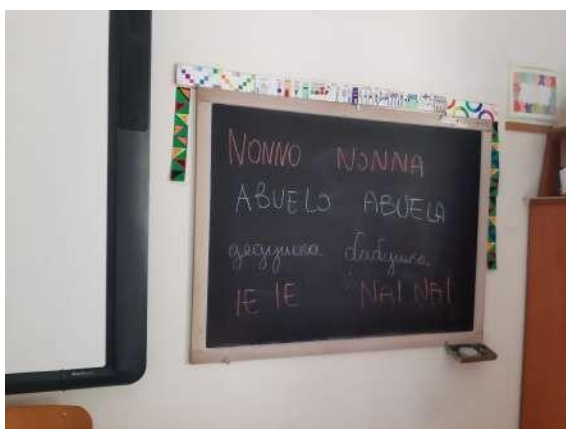 NONNO NONNA
ABUELO ABUELA
дедушка бабушка
IE IE NAI NAI